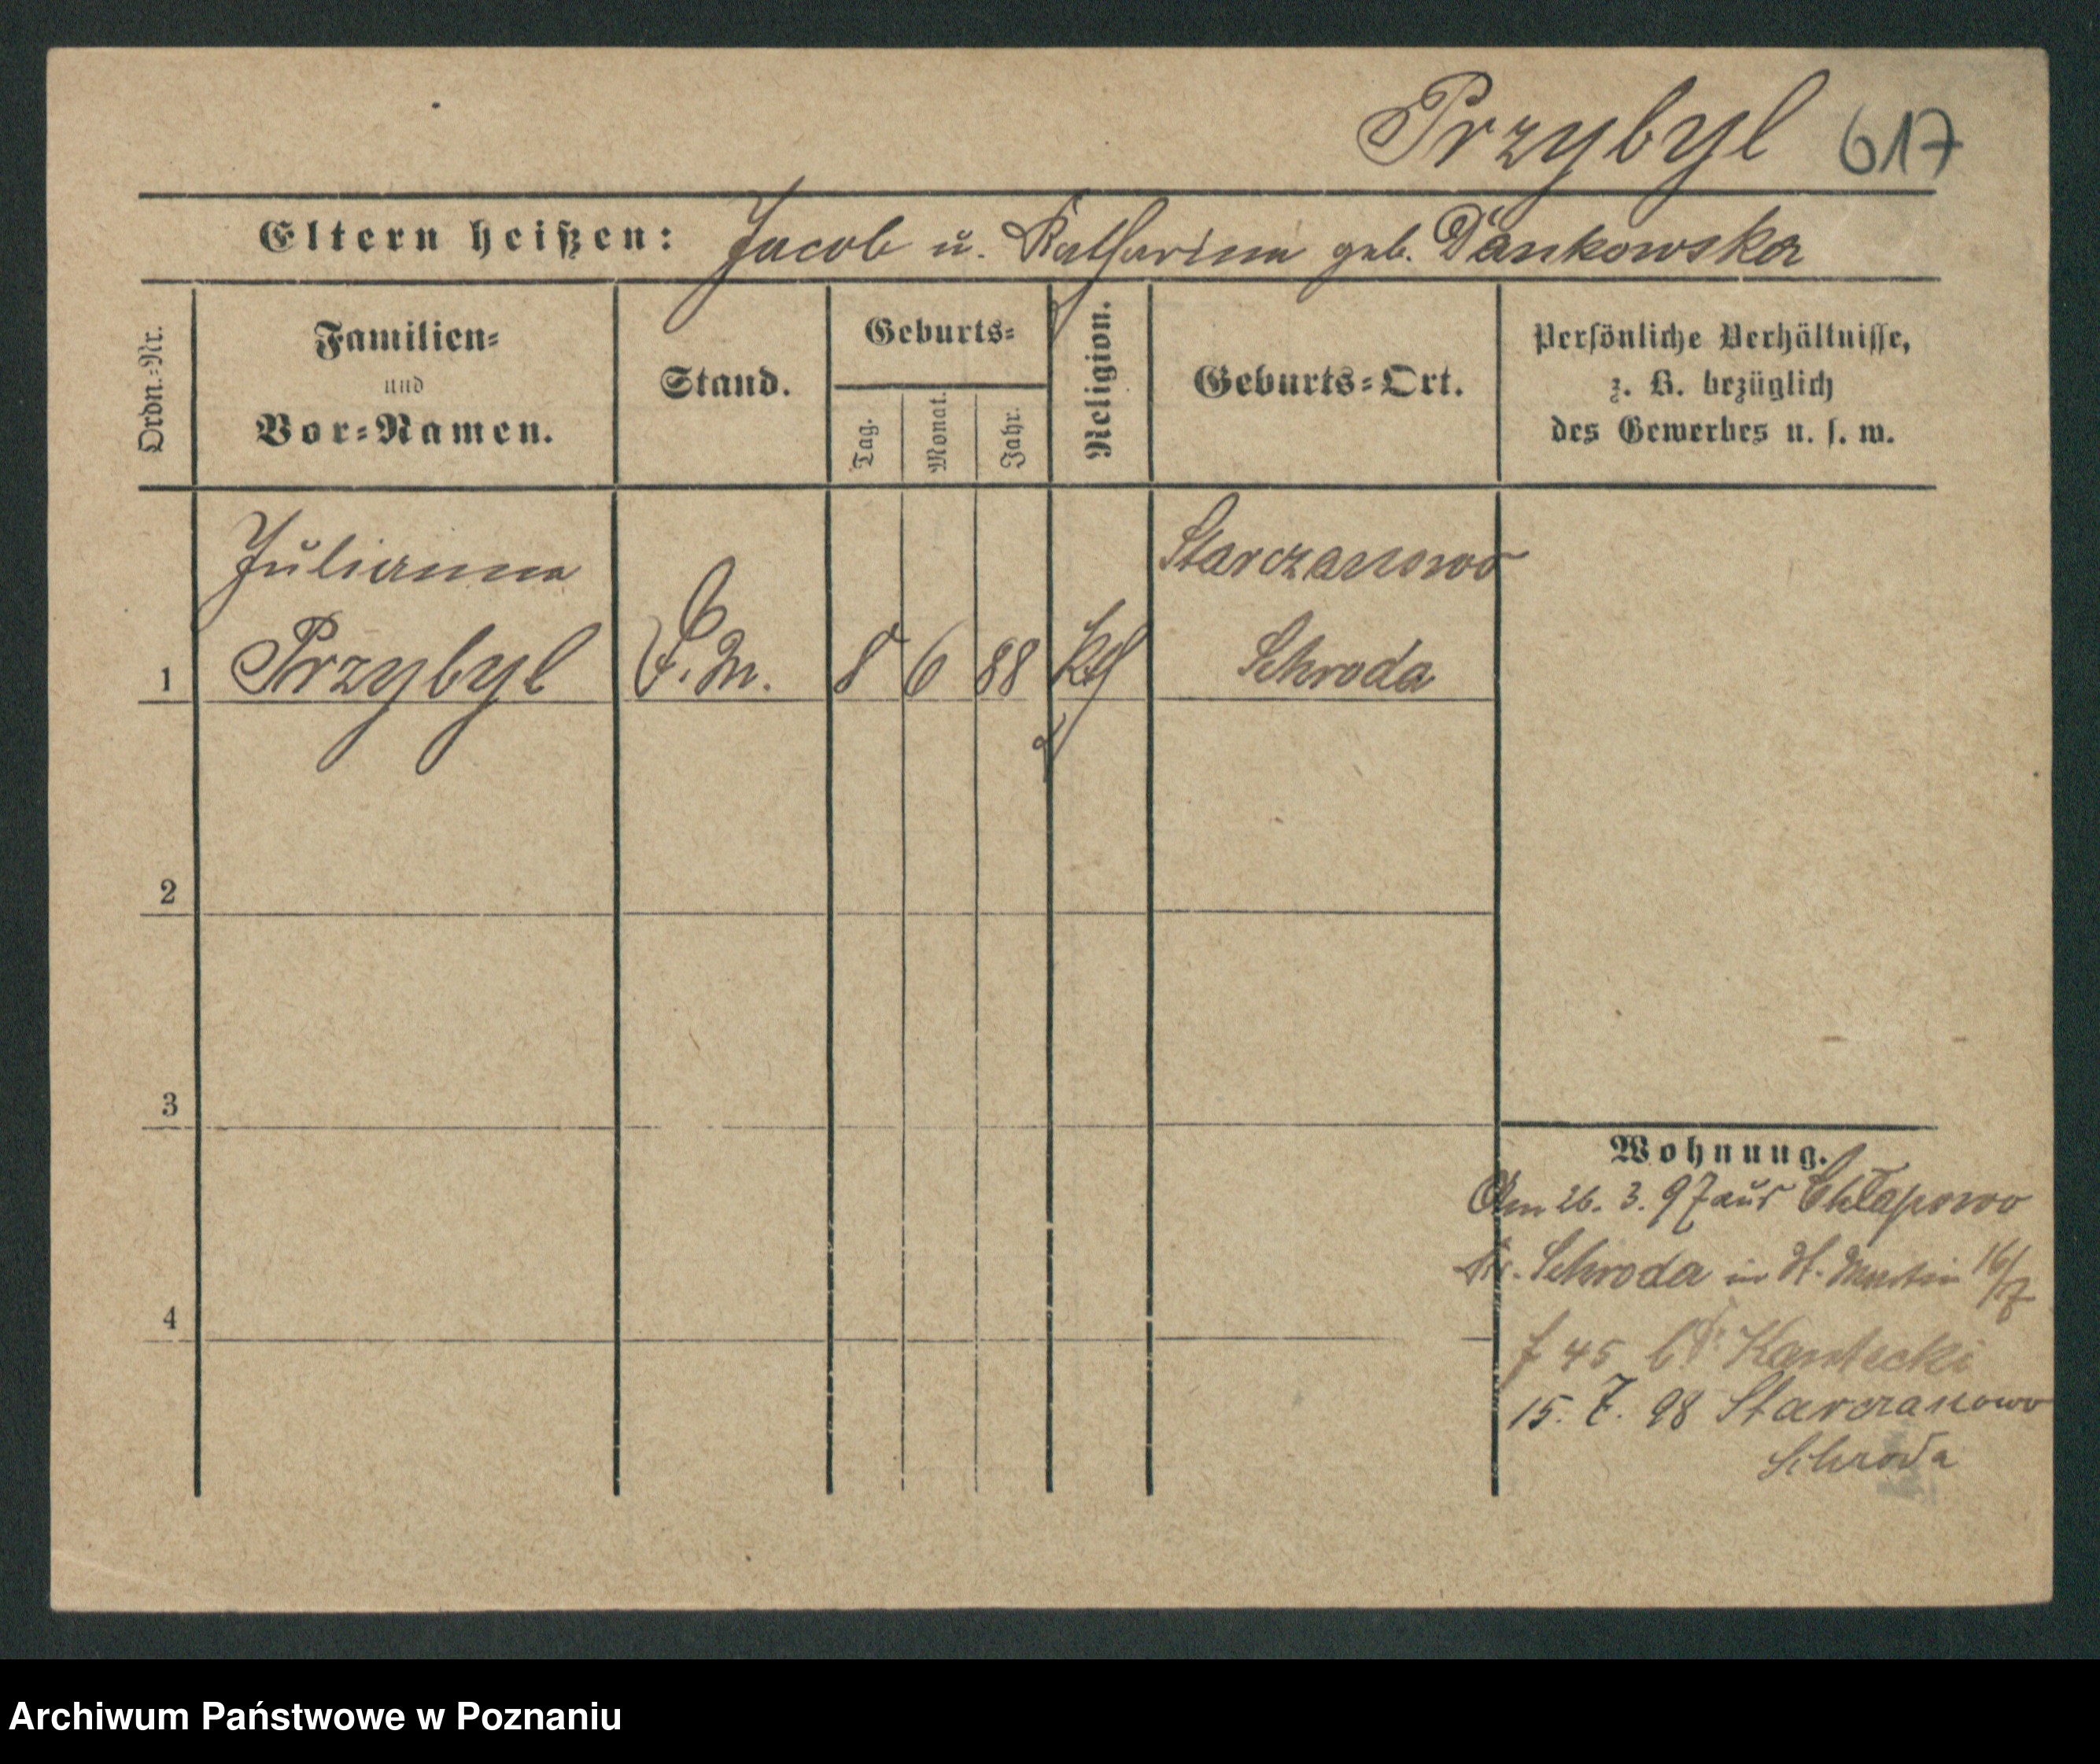 Przybyl 617
Eltern heißen: Jacob u. Katharina geb. Dankowska
Ordn.-Nr.
Familien-
und
Vor-Namen.
Stand.
Geburts-
Tag.
Monat.
Jahr.
Religion.
Geburts-Ort.
Persönliche Verhältnisse,
z. B. bezüglich
des Gewerbes u. s. w.
Julianna
Starczanowo
1 Przybyl 8 6 88 kth Schroda
2
3
4
Wohnung.
Am 26. 3. 97 aus Chłapowo
Kr. Schroda in St. Martin 16/17
f 45 b Kantecki
15. 7. 98 Starczanowo
Schroda
Archiwum Państwowe w Poznaniu